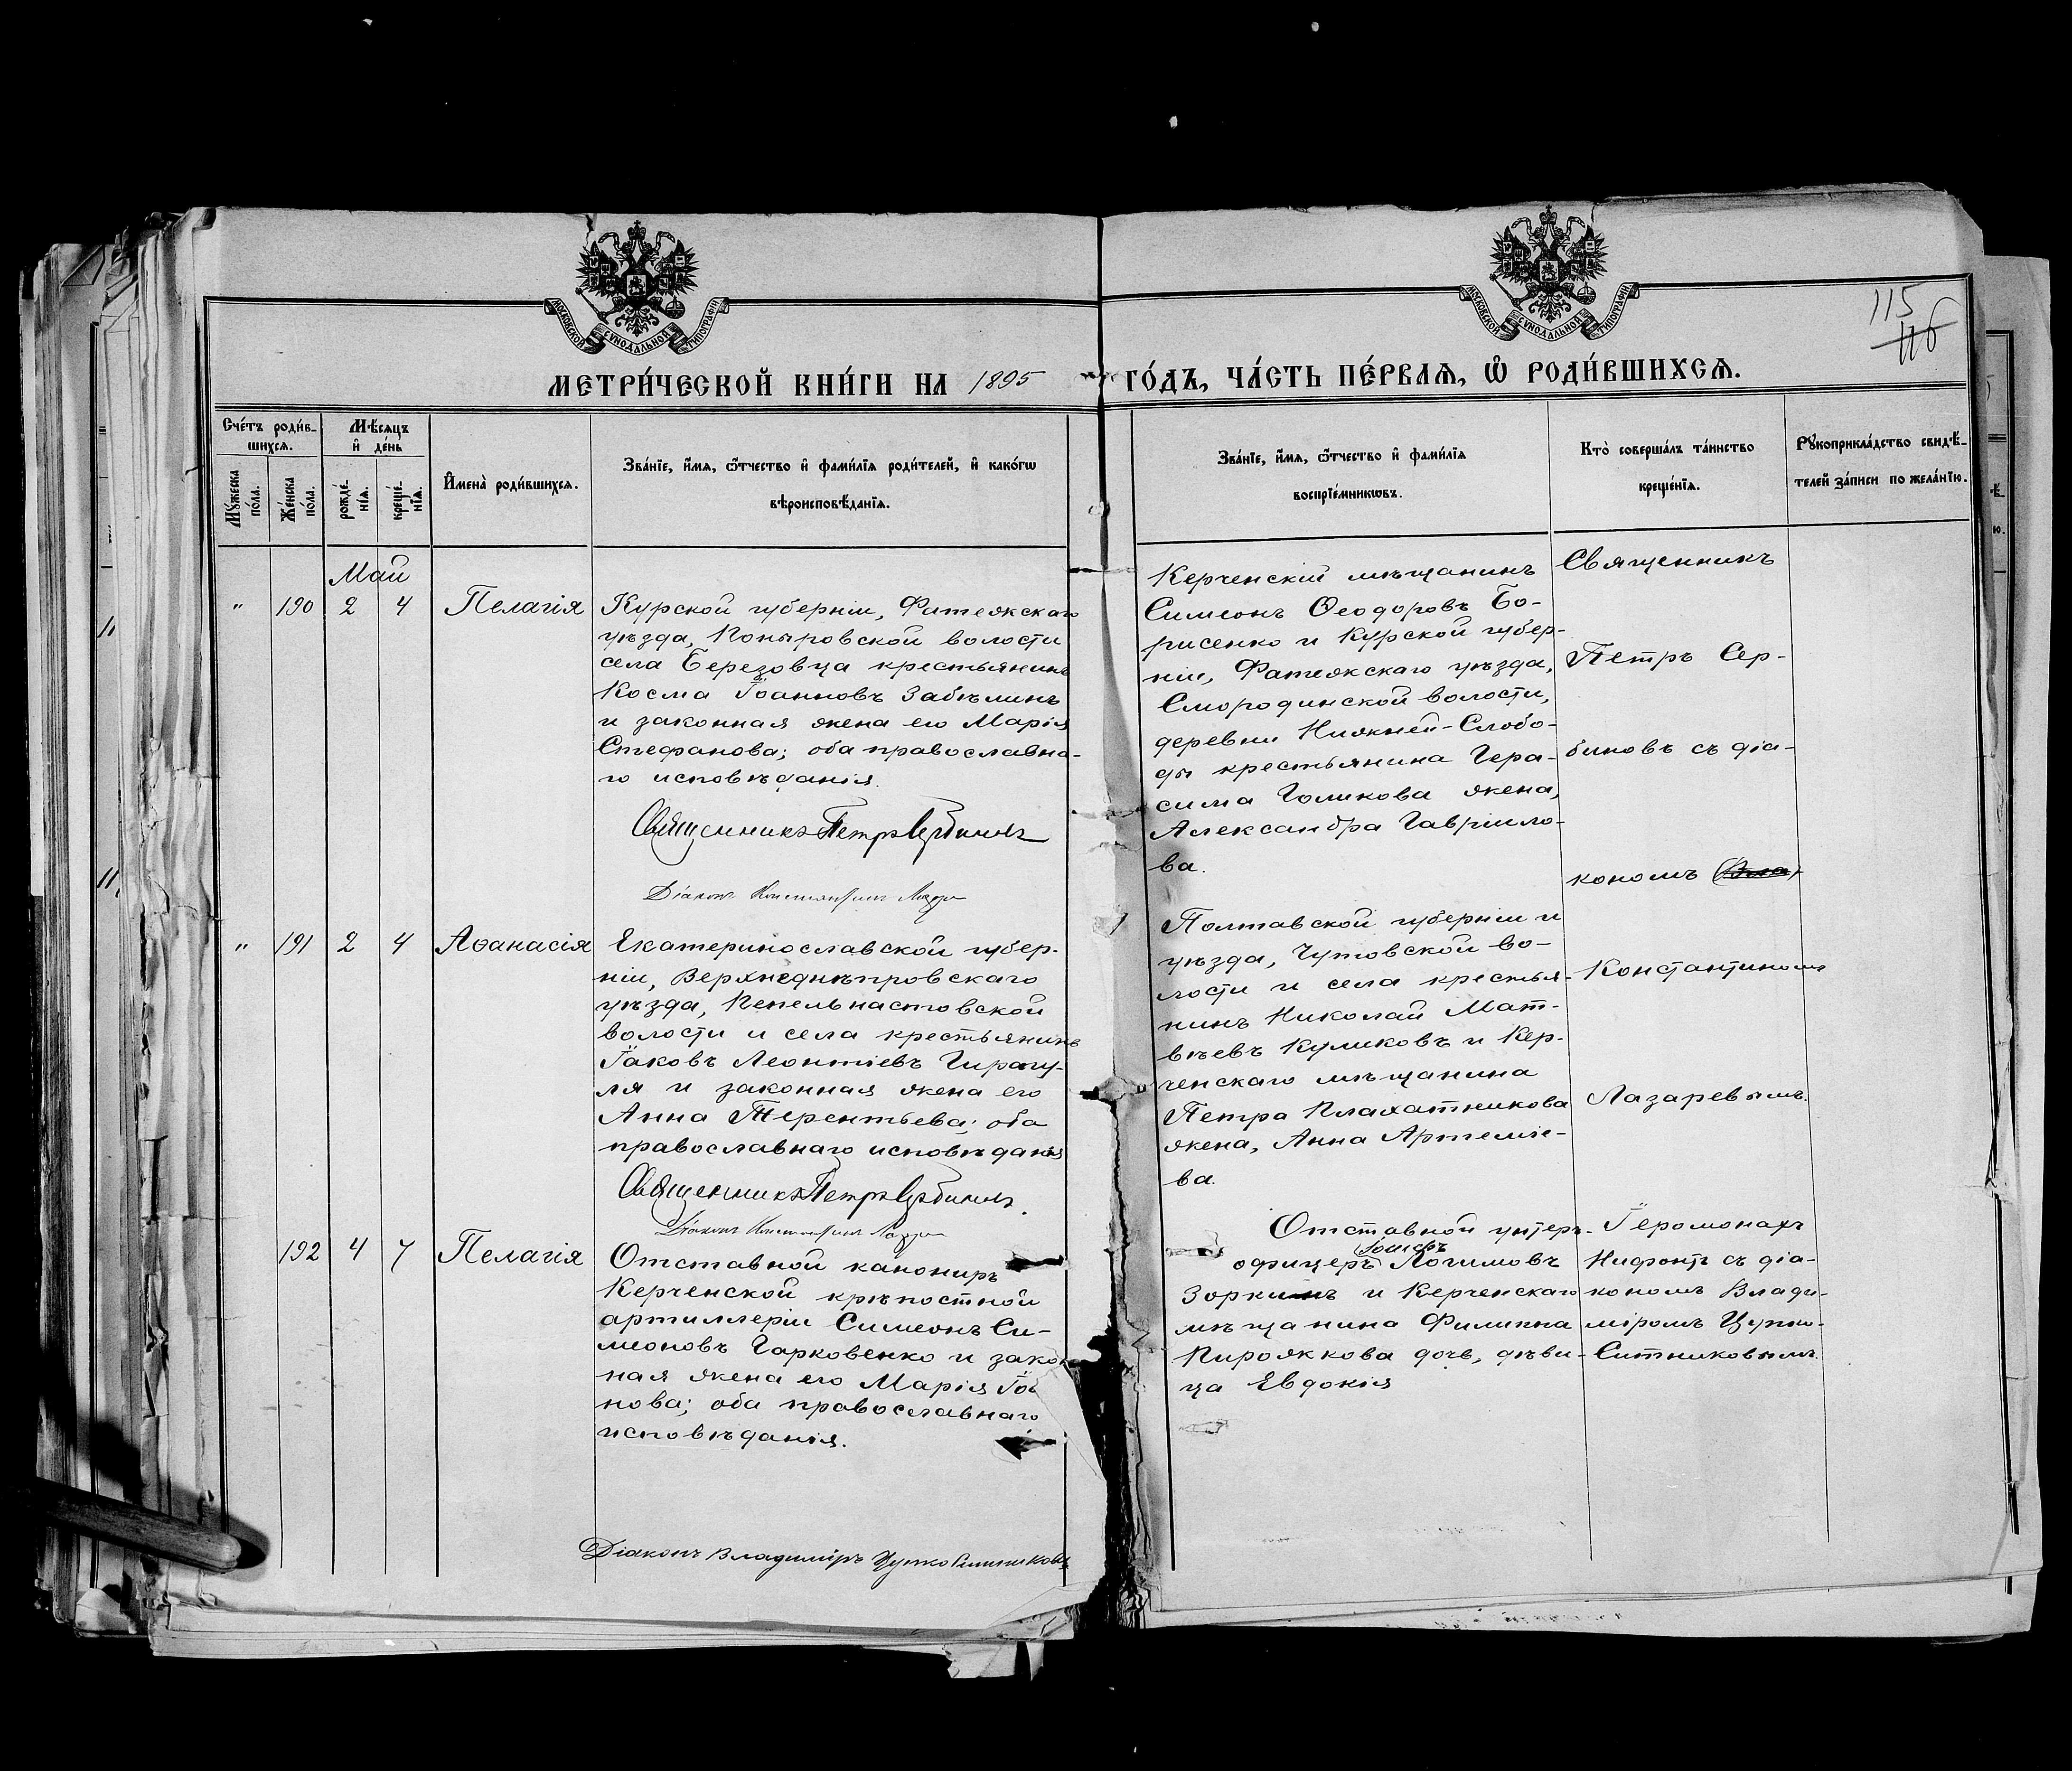 МОСКОВСКОЙ СѴНОДАЛЬНОЙ ТИПОГРАФІИ
МОСКОВСКОЙ СѴНОДАЛЬНОЙ ТИПОГРАФІИ
115
116
МЕТРИ́ЧЕСКОЙ КНИ́ГИ НА 1895 ГО́ДЪ, ЧА́СТЬ ПЕ́РВАѦ, Ѡ҆ РОДИ́ВШИХСѦ.
Сче́тъ роди́в-
шихсѧ.
Мѣ́сѧцъ
и҆ де́нь
Мꙋ́жеска по́ла.
Же́нска по́ла.
рожде́-
нїѧ.
креще́-
нїѧ.
И҆мена̀ роди́вшихсѧ.
Зва́нїе, и҆́мѧ, ѻ҆́тчество и҆ фами́лїѧ роди́телей, и҆ како́гѡ
вѣроисповѣ́данїѧ.
Зва́нїе, и҆́мѧ, ѻ҆́тчество и҆ фами́лїѧ
воспрїе́мникѡвъ.
Кто̀ соверша́лъ та́инство
креще́нїѧ.
Рꙋкоприкла́дство свидѣ́-
телей за́писи по жела́нїю.
Май
" 190 2 4 Пелагія
Курской губерніи, Фатежскаго
уѣзда, Поныровской волости
села Березовца крестьянинъ
Косма Іоанновъ Забѣлинъ
и законная жена его Марія
Стефанова; оба православна-
го исповѣданія.
Священникъ Петръ Сербиновъ
Діаконъ Константинъ Лазаревъ
Керченскій мѣщанинъ
Симеонъ Ѳеодоровъ Бо-
рисенко и Курской губер-
ніи, Фатежскаго уѣзда,
Смородинской волости,
деревни Нижней-Слобо-
ды крестьянина Гера-
сима Голикова жена,
Александра Гавріило-
ва.
Священникъ
Петръ Сер-
биновъ съ діа-
кономъ (Вла)
Константиномъ
Лазаревымъ.
" 191 2 4 Аѳанасія
Екатеринославской губер-
ніи, Верхнеднѣпровскаго
уѣзда, Пепельнастовской
волости и села крестьянинъ
Іаковъ Леонтіевъ Гирагу-
ля и законная жена его
Анна Терентьева; оба
православнаго исповѣданія
Священникъ Петръ Сербиновъ.
Діаконъ Константинъ Лазаревъ
Полтавской губерніи и
уѣзда, Чутовской во-
лости и села крестья-
нинъ Николай Мат-
вѣевъ Куликовъ и Кер-
ченскаго мѣщанина
Петра Плахатникова
жена, Анна Артеміе-
ва.
192 4 7 Пелагія
Отставной канониръ
Керченской крѣпостной
артиллеріи Симеонъ Си-
меоновъ Гарковенко и закон
ная жена его Марія Іоа
нова; оба православнаго
исповѣданія.
Діаконъ Владиміръ Цупко Ситниковъ
Отставной унтеръ-
Іосифъ
офицеръ Логиновъ
Зоркинъ и Керченскаго
мѣщанина Филиппа
Пирожкова дочь, дѣви-
ца Евдокія
Іеромонахъ
Нифонтъ съ діа-
кономъ Влади-
міромъ Цупко-
Ситниковымъ.